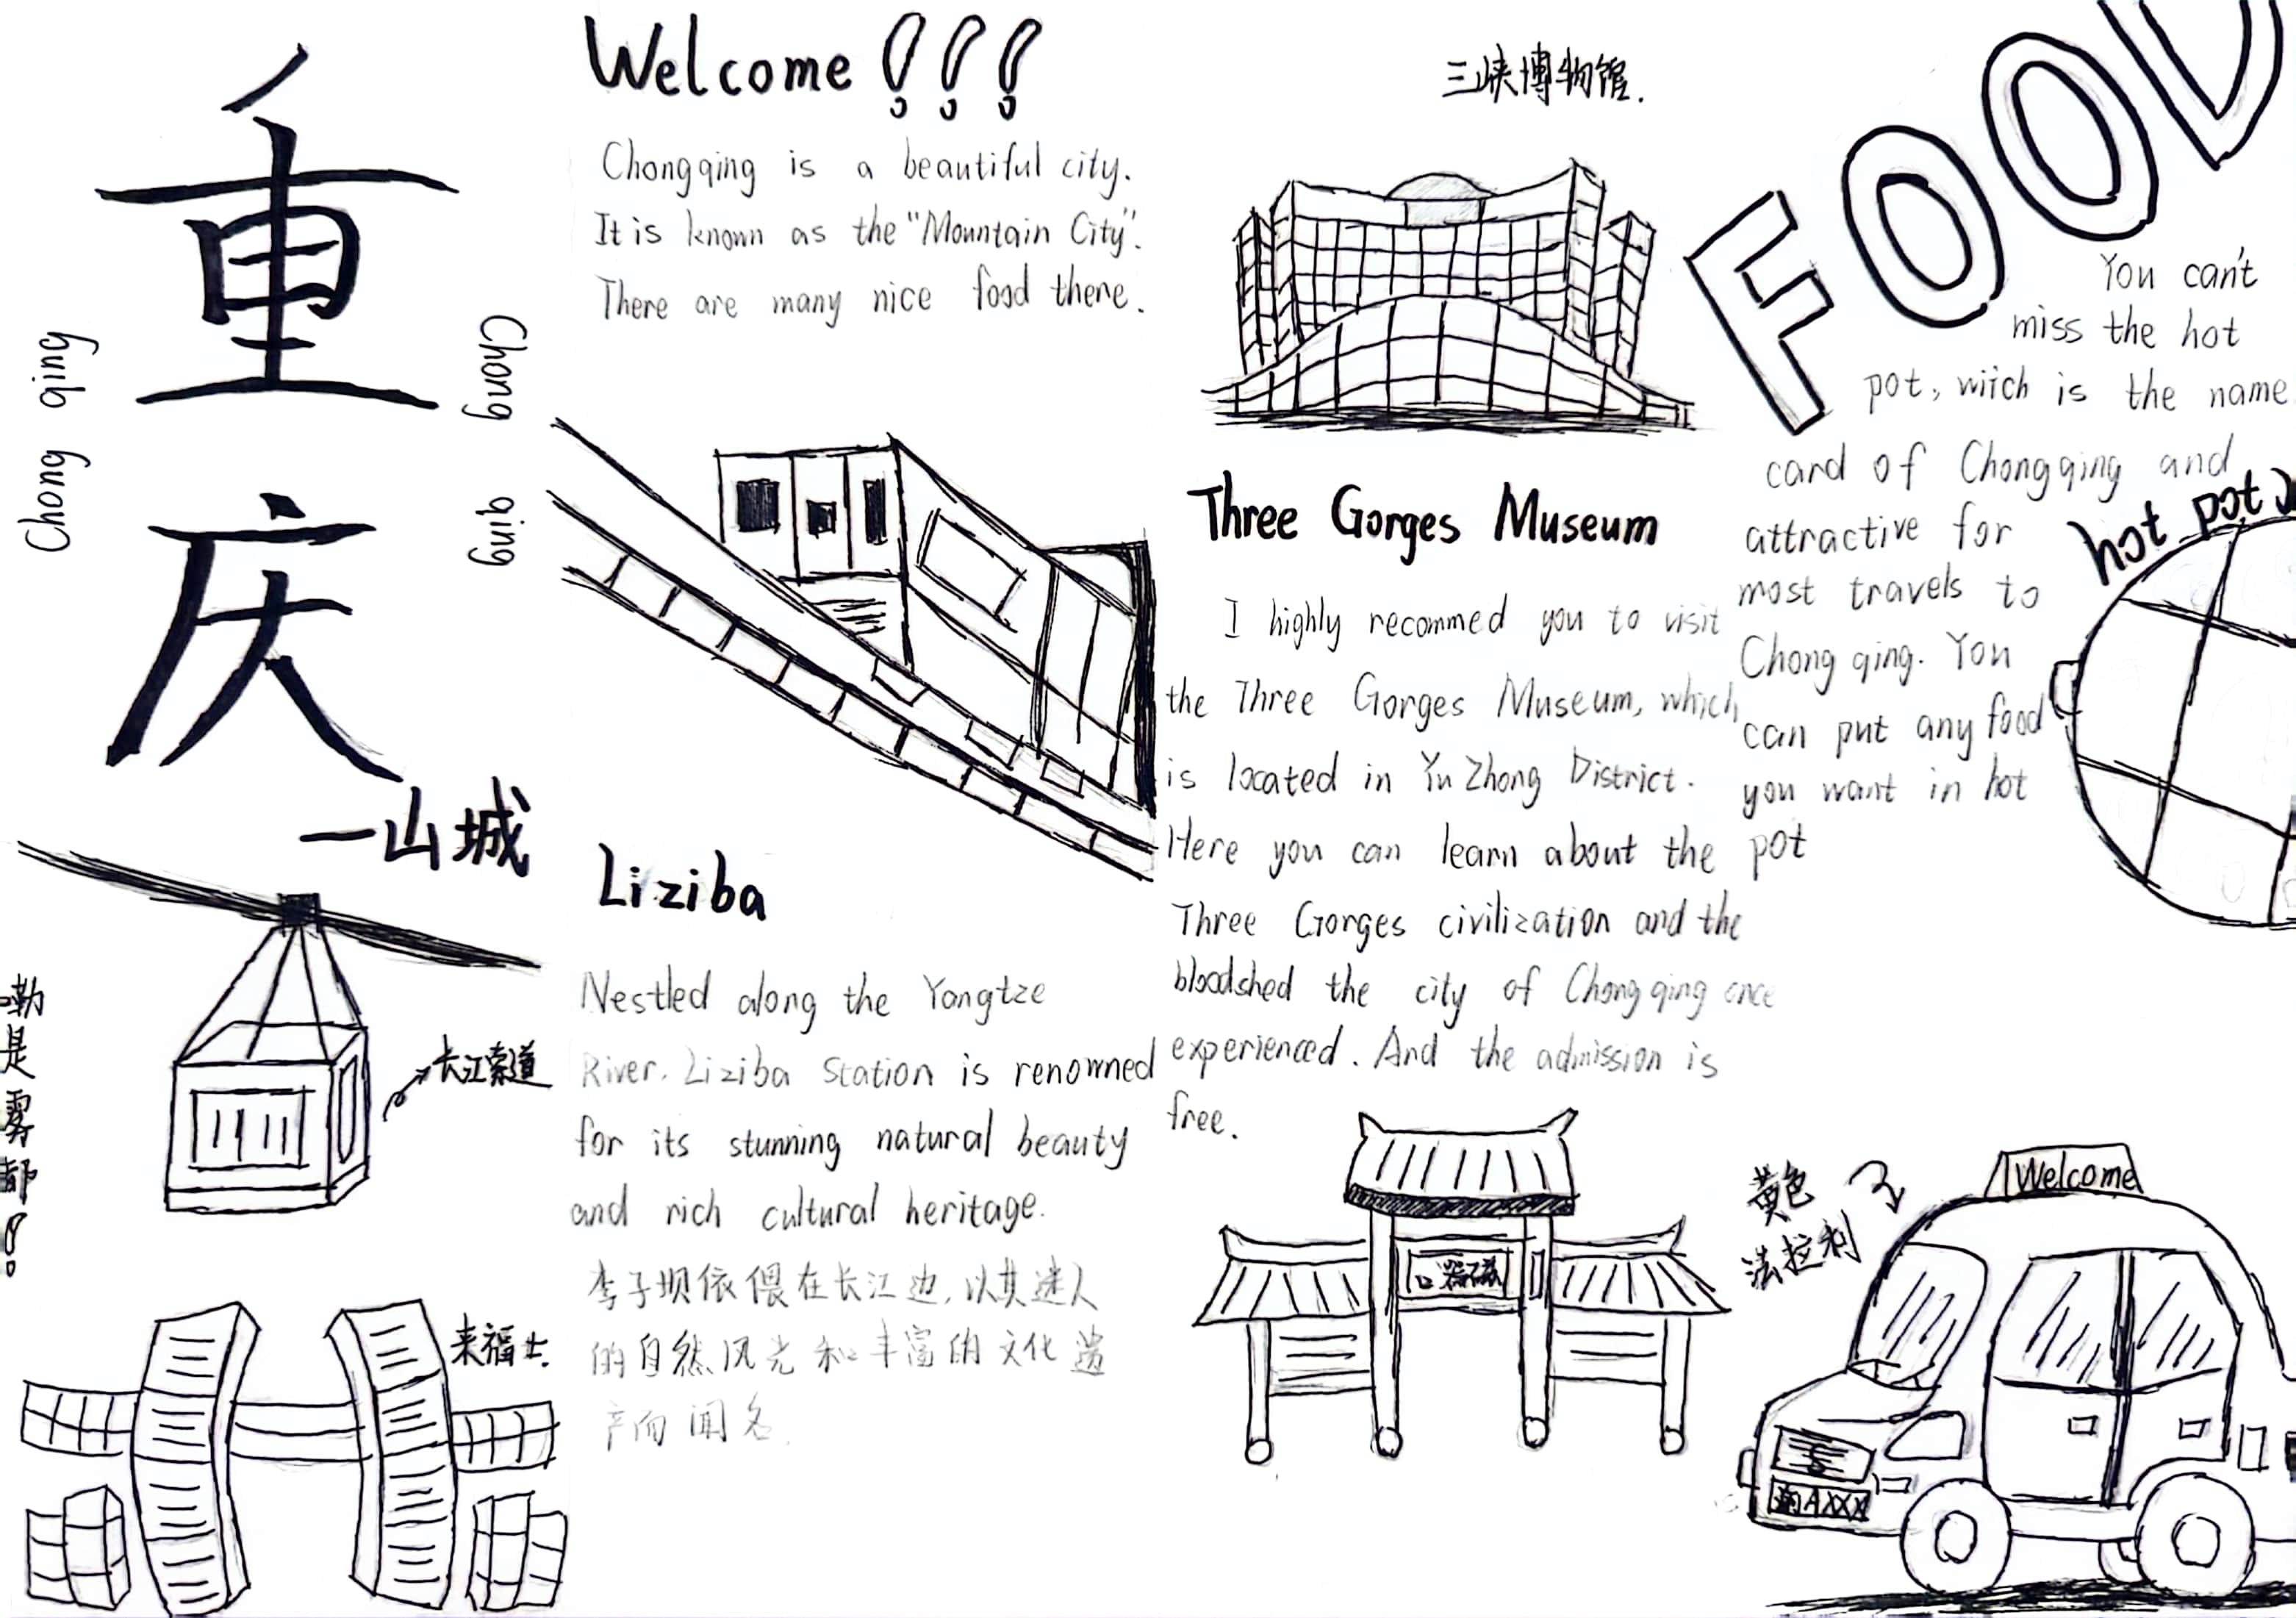 重庆
Chong qing
Chong qing
一山城
长江索道
嘞是雾都!
来福士.
Welcome !!!
Chongqing is a beautiful city.
It is known as the "Mountain City".
There are many nice food there.
Liziba
Nestled along the Yangtze
River. Liziba Station is renowned
for its stunning natural beauty
and rich cultural heritage.
李子坝依偎在长江边,以其迷人
的自然风光和丰富的文化遗
产而闻名.
三峡博物馆.
Three Gorges Museum
I highly recommed you to visit
the Three Gorges Museum, which
is located in Yu Zhong District.
Here you can learn about the
Three Gorges civilization and the
bloodshed the city of Chongqing once
experienced. And the admission is
free.
口器磁
FOOD
You can't
miss the hot
pot, wiich is the name
card of Chongqing and
attractive for
most travels to
Chong qing. You
can put any food
you want in hot
pot
hot pot
黄色
法拉利
Welcome
渝AXXX